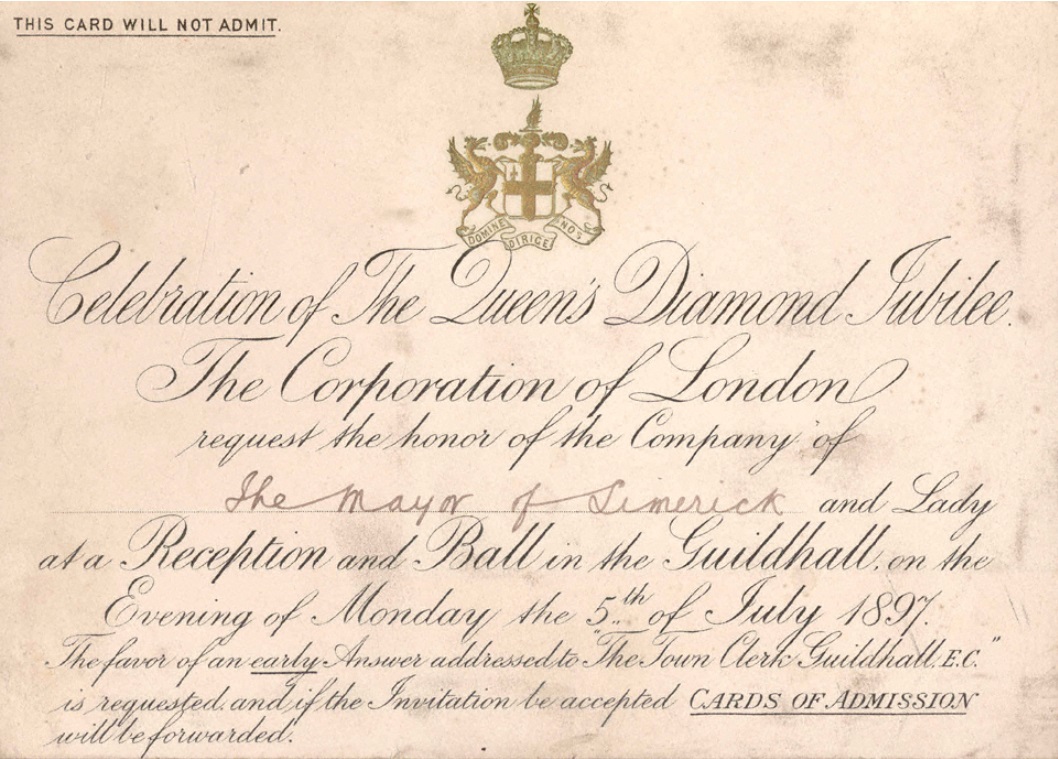 THIS CARD WILL NOT ADMIT.
DOMINE DIRIGE NOS
Celebration of The Queen's Diamond Jubilee.
The Corporation of London
request the honor of the Company of
The Mayor of Limerick and Lady
at a Reception and Ball in the Guildhall, on the
Evening of Monday the 5th of July 1897.
The favor of an early Answer addressed to "The Town Clerk Guildhall, E.C."
is requested, and if the Invitation be accepted CARDS OF ADMISSION
will be forwarded.